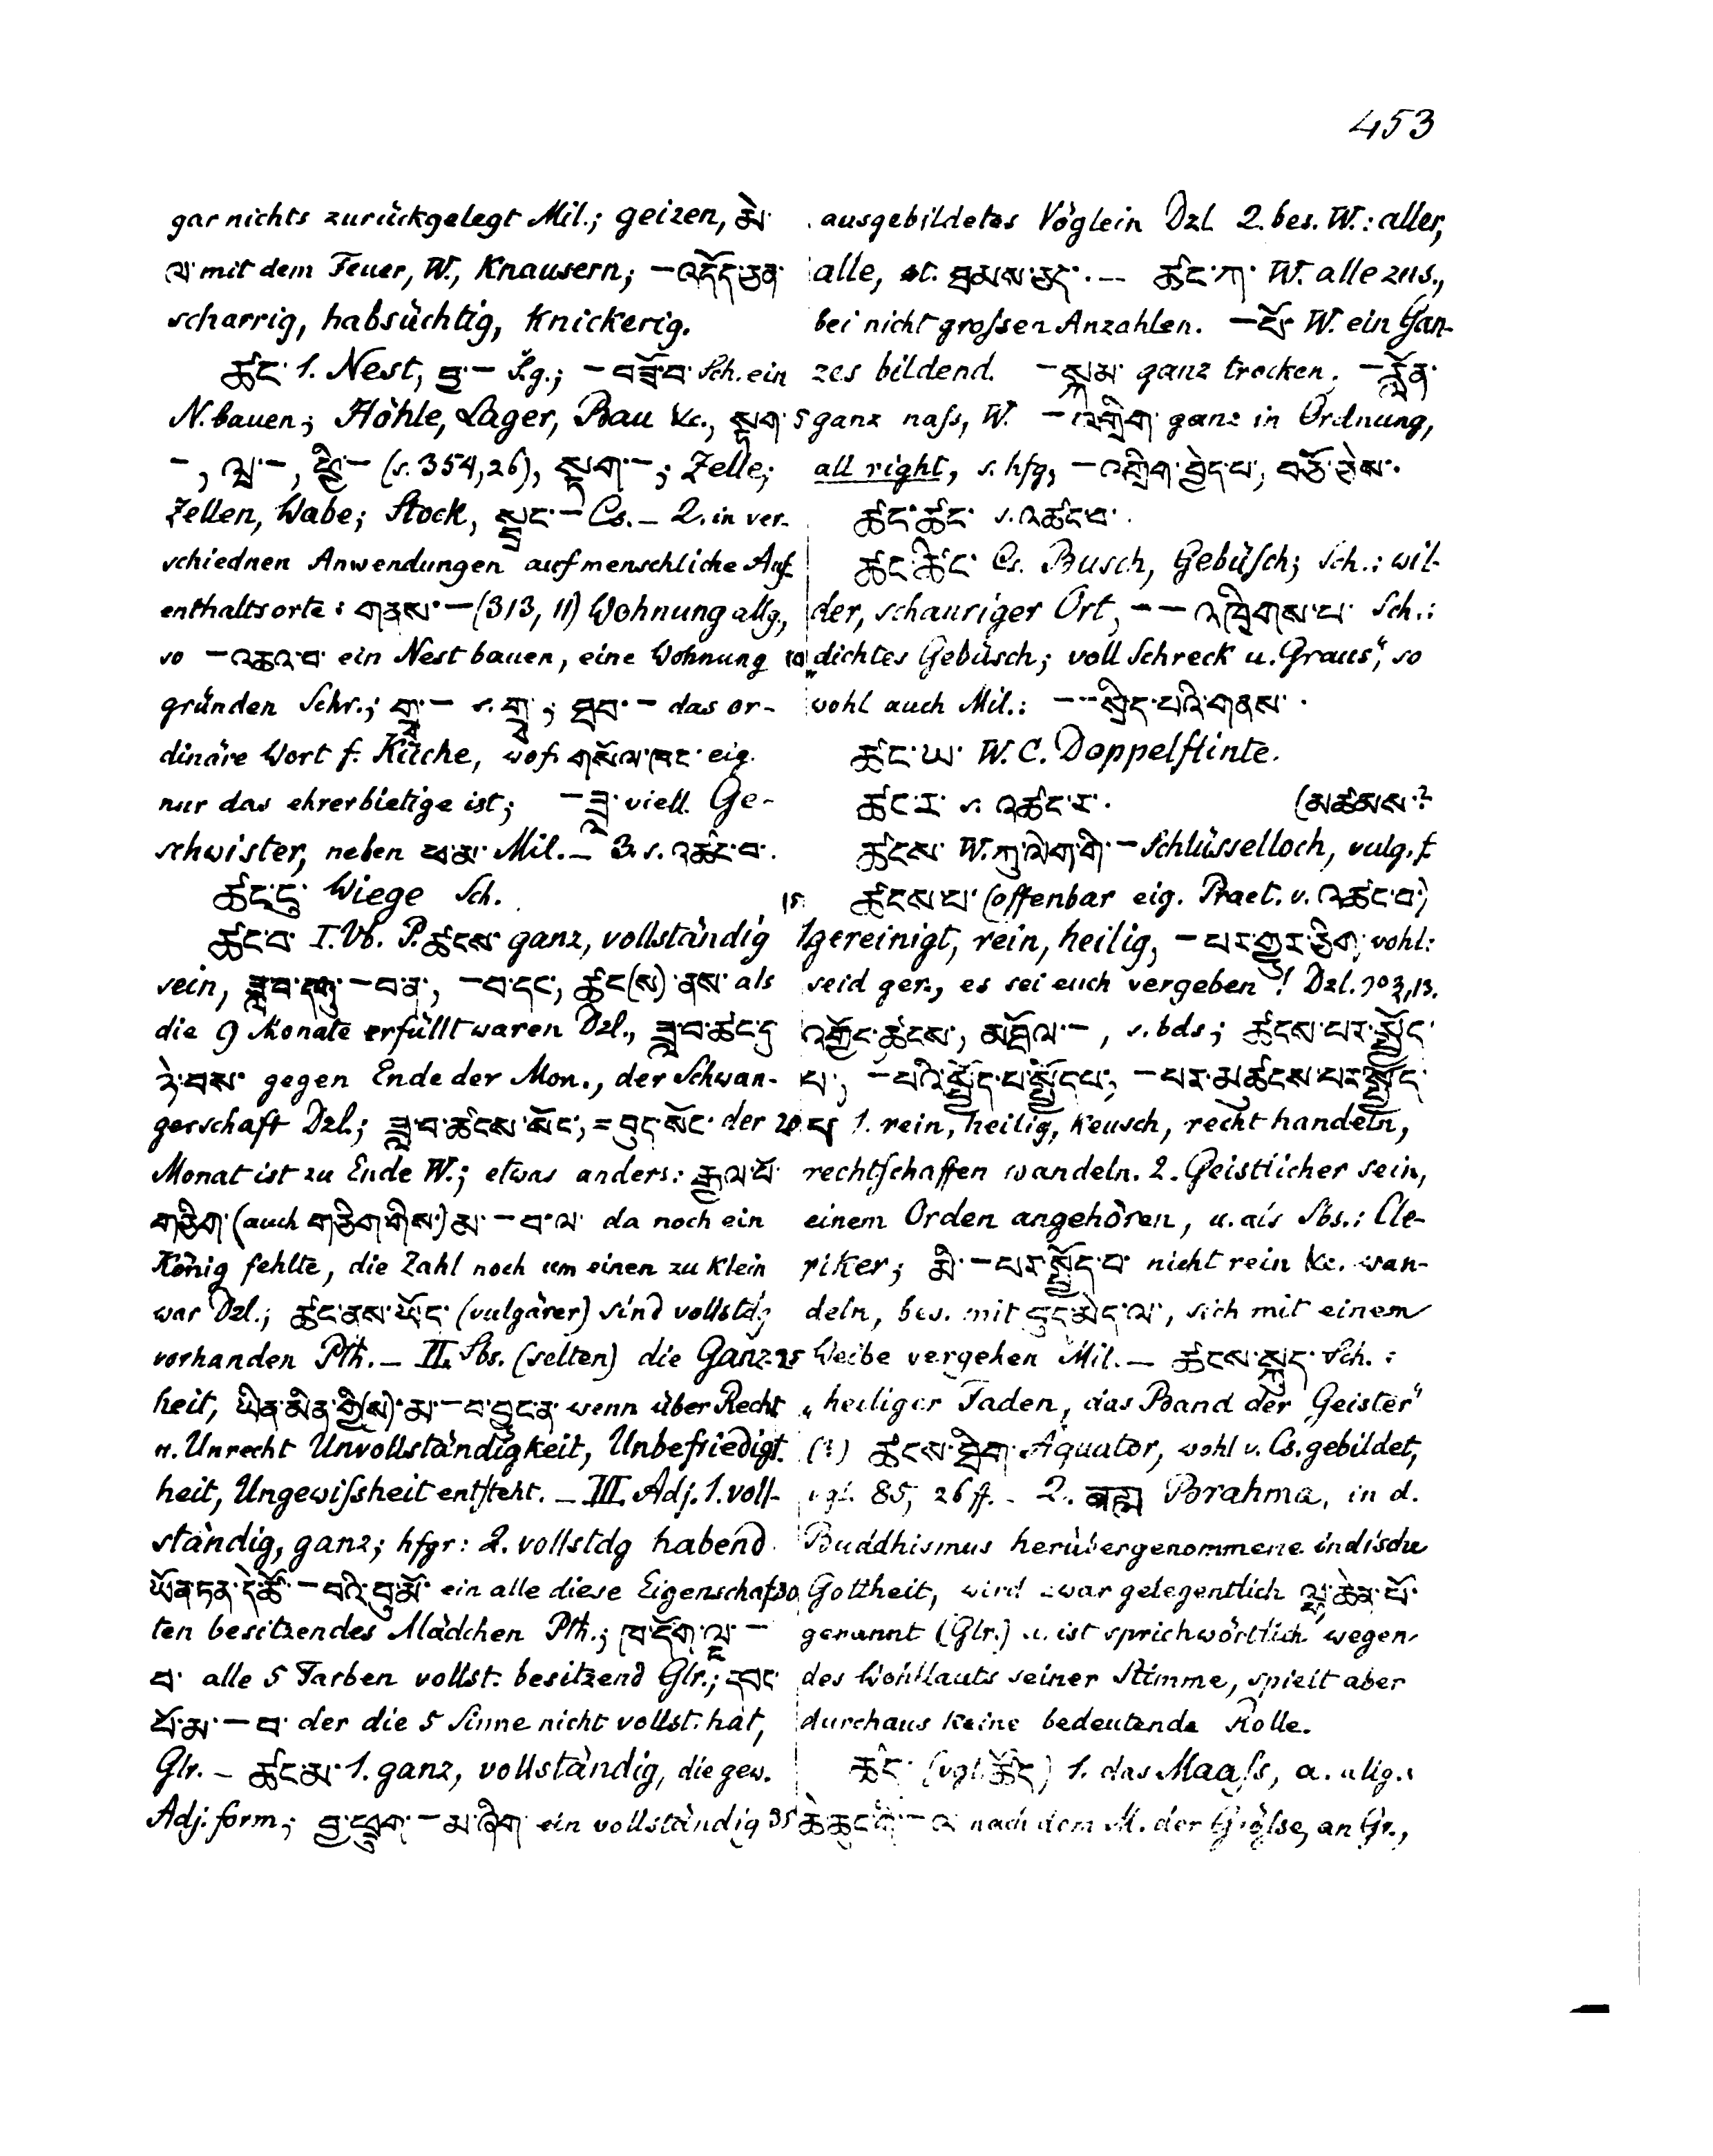 453
gar nichts zurückgelegt Mil.; geizen, མེ་
ལ་ mit dem Feuer, W., knausern; – འདོད་ཅན་
scharrig, habsüchtig, knickerig.
ཚང་ 1. Nest, བྱ་ – S.g.; – བཟོ་བ་ Sch. ein
N. bauen; Höhle, Lager, Bau &c., སྟག་
–, ཝ་ –, ཕྱི་ – (s. 354, 26), སྟག་ –; Zelle;
Zellen, Wabe; Stock, སྦྲང་ – Cs. – 2. in ver-
schiednen Anwendungen auf menschliche Auf-
enthaltsorte: གནས་ – (313, 11) Wohnung allg.,
so – འཆའ་བ་ ein Nest bauen, eine Wohnung
gründen Schr.; གྲྭ་ – s. གྲྭ་; ཐབ་ – das or-
dinäre Wort f. Küche, wof. གསོལ་ཁང་ eig.
nur das ehrerbietige ist; – ཟླ་ viell. Ge-
schwister, neben ཕ་མ་ Mil. – 3. s. འཚང་བ་.
ཚང་དུ་ Wiege Sch.
ཚང་བ་ I. Vb. P. ཚངས་ ganz, vollständig
sein, ཟླ་བ་དགུ་ – བ་ན་, – བ་དང་, ཚང(ས)་ནས་ als
die 9 Monate erfüllt waren Dzl., ཟླ་བ་ཚང་དུ་
ཉེ་བས་ gegen Ende der Mon., der Schwan-
gerschaft Dzl.; ཟླ་བ་ཚངས་སོང་, = བུད་སོང་ der
Monat ist zu Ende W.; etwas anders: རྒྱལ་པོ་
གཅིག་ (auch གཅིག་གིས་) མ་ – བ་ལ་ da noch ein
König fehlte, die Zahl noch um einen zu klein
war Dzl.; ཚང་ནས་ཡོད་ (vulgärer) sind vollstdg
vorhanden Pth. – II. Sbs. (selten) die Ganz-
heit, ཡིན་མིན་གྱི(ས)་མ་ – བ་བྱུང་ན་ wenn über Recht
u. Unrecht Unvollständigkeit, Unbefriedigt-
heit, Ungewißheit entsteht. – III. Adj. 1. voll-
ständig, ganz; hfgr: 2. vollstdg habend
ཡོན་ཏན་དེ་ཚོ་ – བའི་བུ་མོ་ ein alle diese Eigenschaf-
ten besitzendes Mädchen Pth.; ཁ་དོག་ལྔ་ –
བ་ alle 5 Farben vollst. besitzend Glr.; དབང་
པོ་མ་ – བ་ der die 5 Sinne nicht vollst. hat,
Glr. – ཚང་མ་ 1. ganz, vollständig, die gew.
Adj. form; བྱ་ཕྲུག་ – མ་ཞིག་ ein vollständig
ausgebildetes Vöglein Dzl. 2. bes. W.: aller,
alle, st. ཐམས་ཅད་. – ཚང་ཀ་ W. alle zus.,
bei nicht großen Anzahlen. – པོ་ W. ein Gan-
zes bildend. – སྐམ་ ganz trocken. – རློན་
5 ganz naß, W. – འགྲིག་ ganz in Ordnung,
all right, s. hfg, – འགྲིག་བྱེད་པ་, བཅོ་ཅེས་.
ཚང་ཚང་ s. འཚང་བ་.
ཚང་ཚིང་ Cs. Busch, Gebüsch; Sch.: wil-
der, schauriger Ort, – – འཁྲིགས་པ་ Sch.:
10 „dichtes Gebüsch; voll Schreck u. Graus“, so
wohl auch Mil.: – – སྲིད་པའི་གནས་.
ཚང་ཡ་ W. C. Doppelflinte.
ཚང་ར་ s. འཚང་ར་. (མཚམས་?
ཚངས་ W. ཀུ་ལེག་གི་ – Schlüsselloch, vulg. f.
15 ཚངས་པ་ (offenbar eig. Praet. v. འཚང་བ་)
1. gereinigt, rein, heilig, – པར་གྱུར་ཅིག་ wohl:
seid ger., es sei euch vergeben! Dzl. 903, 13.
འགྱོད་ཚངས་, མཐོལ་ –, s. bds; ཚངས་པར་སྤྱོད་
པ་, – པའི་སྤྱོད་པ་སྤྱོད་པ་, – པར་མཚུངས་པར་སྤྱོད་
20 པ་ 1. rein, heilig, keusch, recht handeln,
rechtschaffen wandeln. 2. Geistlicher sein,
einem Orden angehören, u. als Sbs.: Cle-
riker; མི་ – པར་སྤྱོད་པ་ nicht rein &c. wan-
deln, bes. mit བུད་མེད་ལ་, sich mit einem
25 Weibe vergehen Mil. – ཚངས་སྐུད་ Sch.:
„heiliger Faden, das Band der Geister“
(?) ཚངས་ཐིག་ Äquator, wohl v. Cs. gebildet,
vgl. 85, 26 ff. – 2. ब्रह्मा Brahma, in d.
Buddhismus herübergenommene indische
30 Gottheit, wird zwar gelegentlich ལྷ་ཆེན་པོ་
genannt (Glr.) u. ist sprichwörtlich wegen
des Wohllauts seiner Stimme, spielt aber
durchaus keine bedeutende Rolle.
ཚད་ (vgl. ཚོད་) 1. das Maaß, a. allg.:
35 ཆེ་ཆུང་གི་ – ལ་ nach dem M. der Größe, an Gr.,